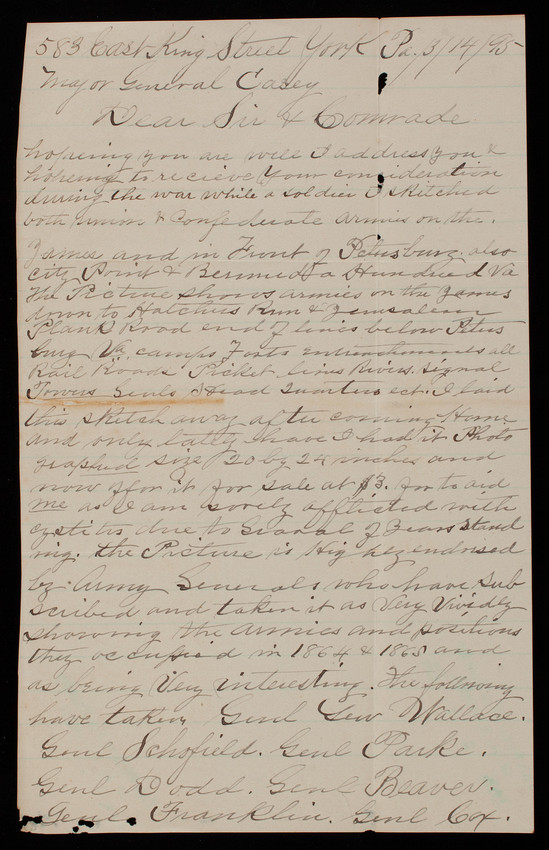 583 East King Street York Pa. 3/14/95
Major General Casey
Dear Sir & Comrade
hopeing you are well I address you &
hopeing to recieve your consideration
during the war while a soldier I sketched
both union & Confederate armies on the
James and in Front of Petersburg also
city Point & Bermuda Hundred Va
the Picture shows armies on the James
down to Hatchers Run & Jerusalem
Plank Road end of lines below Peters
burg Va. camps Forts entrenchments all
Rail Roads Picket lines Rivers Signal
Towers Genls Head Quarters ect. I laid
this sketch away after coming Home
and only lately have I had it Photo
graphed size 20 by 24 inches and
now offer it for sale at $3. for to aid
me as I am sorely afflicted with
cystitis due to of years stand
ing. the Picture is endorsed
by Army Generals who have sub
scribed and taken it as Very Vividly
showing the armies and positions
they occupied in 1864 & 1865 and
as being Very interesting. The following
have taken Genl Lew Wallace.
Genl Schofield. Genl Parke.
Genl Dodd. Genl Beaver.
Genl. Franklin. Genl Cox.